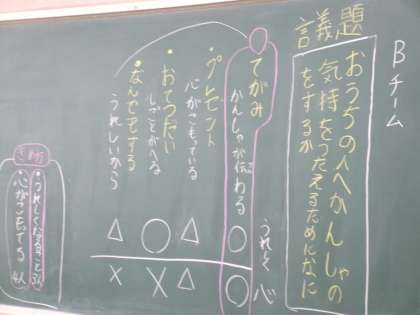 Bチーム
議題
おうちの人へかんしゃの
気持をつたえるためになに
をするか
うれしく 心
てがみ
かんしゃが伝わる
○ ○
プレゼント
心がこもっている
△ △
おてつだい
しごとがへる
○ ×
なんでもする
うれしいから
△ ×
うれしくなること 3人
心がこもってる 4人